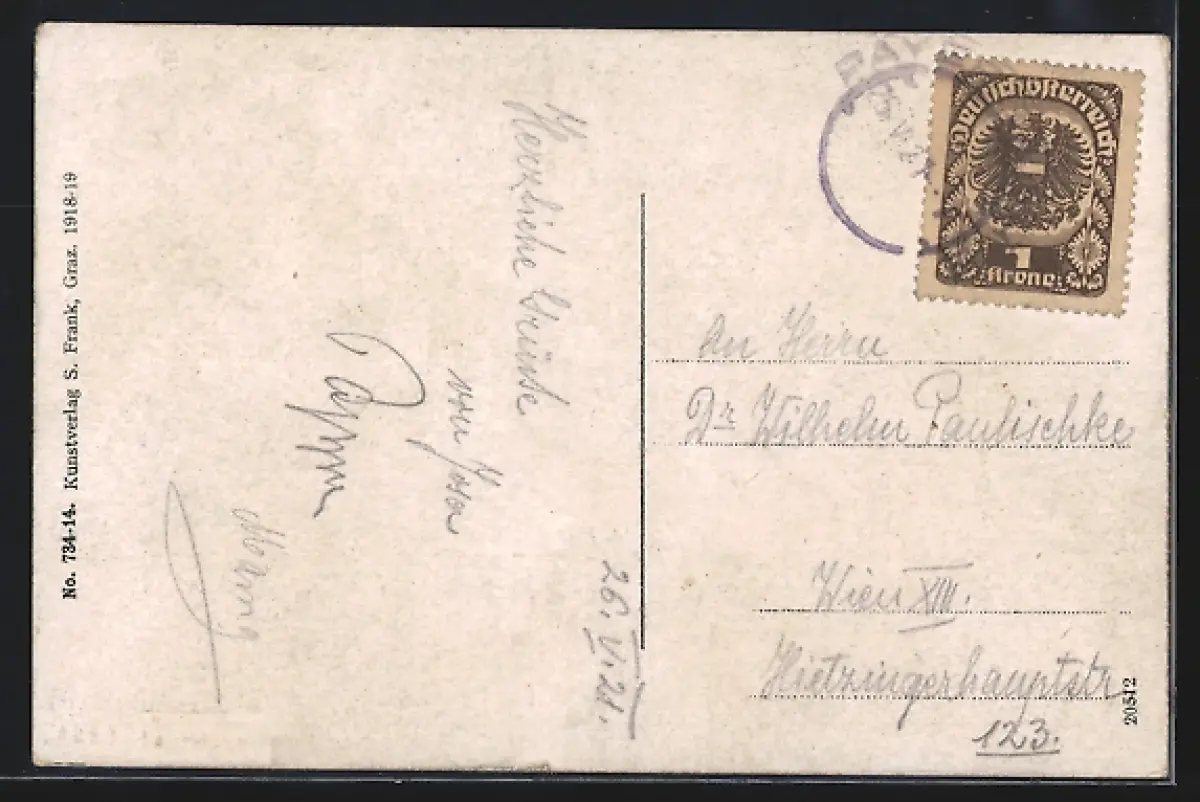 No. 734-14. Kunstverlag S. Frank, Graz. 1918-19
Herzliche Grüsse
von
26. V. 21.
Deutschösterreich
1
Krone
An Herrn
Dr Wilhelm Paulischke
Wien XIII.
Hietzingerhauptstr
123.
20512